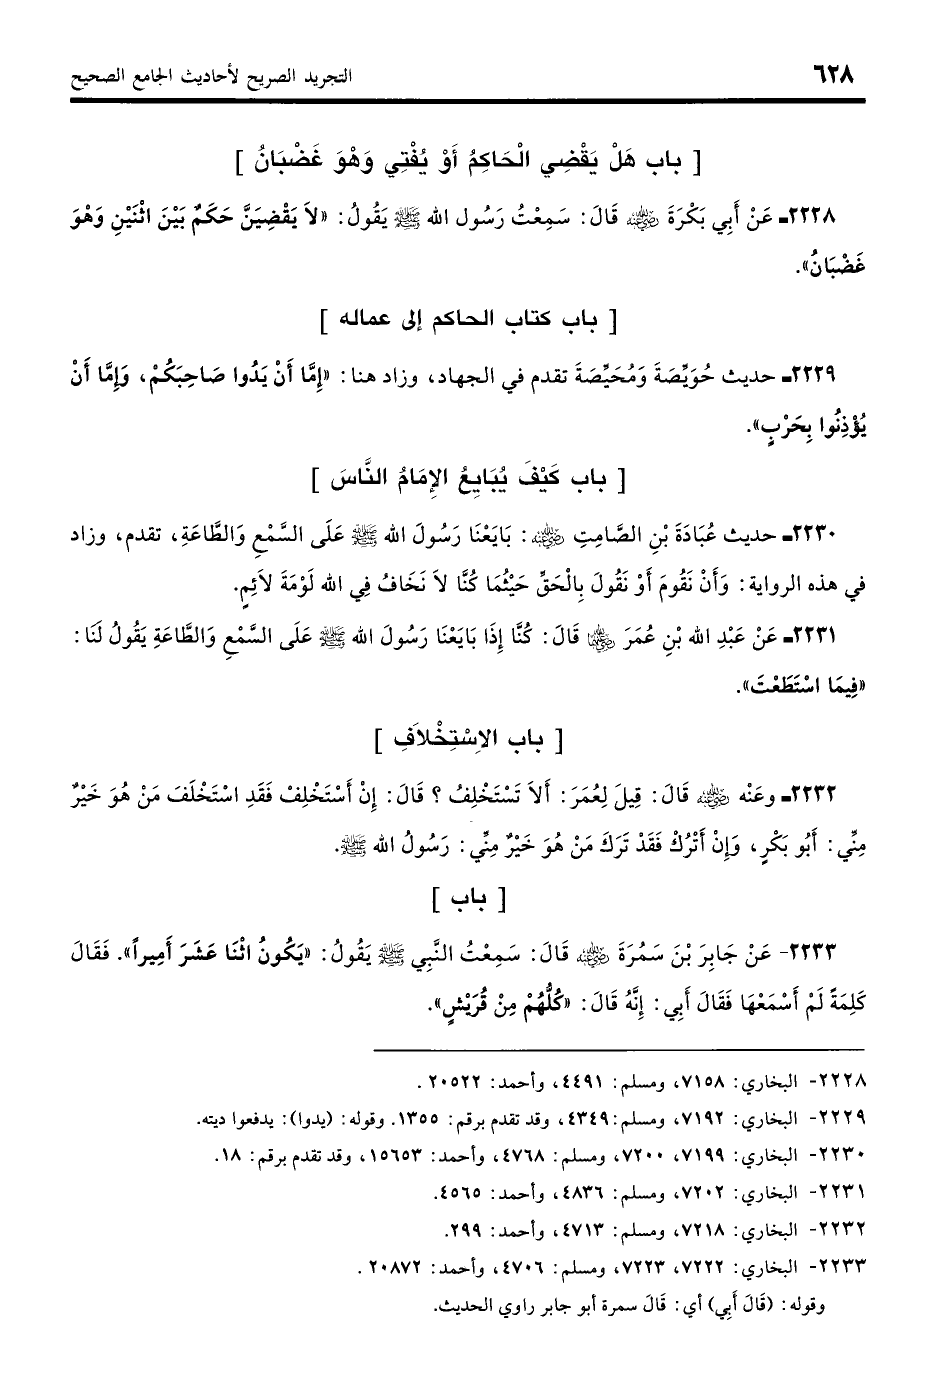 ٦٢٨ التجريد الصريح لأحاديث الجامع الصحيح
[ باب هَلْ يَقْضِي الْحَاكِمُ أَوْ يُفْتِي وَهْوَ غَضْبَانُ ]
٢٢٢٨ـ عَنْ أَبِي بَكْرَةَ رضي الله عنه قَالَ: سَمِعْتُ رَسُول الله ﷺ يَقُولُ: «لاَ يَقْضِيَنَّ حَكَمٌ بَيْنَ اثْنَيْنِ وَهْوَ
غَضْبَانُ».
[ باب كتاب الحاكم إلى عماله ]
٢٢٢٩ـ حديث حُوَيِّصَةَ وَمُحَيِّصَةَ تقدم في الجهاد، وزاد هنا: «إِمَّا أَنْ يَدُوا صَاحِبَكُمْ، وَإِمَّا أَنْ
يُؤْذِنُوا بِحَرْبٍ».
[ باب كَيْفَ يُبَايِعُ الإِمَامُ النَّاسَ ]
٢٢٣٠ـ حديث عُبَادَةَ بْنِ الصَّامِتِ رضي الله عنه: بَايَعْنَا رَسُولَ الله ﷺ عَلَى السَّمْعِ وَالطَّاعَةِ، تقدم، وزاد
في هذه الرواية: وَأَنْ نَقُومَ أَوْ نَقُولَ بِالْحَقِّ حَيْثُمَا كُنَّا لاَ نَخَافُ فِي الله لَوْمَةَ لاَئِمٍ.
٢٢٣١ـ عَنْ عَبْدِ الله بْنِ عُمَرَ رضي الله عنهما قَالَ: كُنَّا إِذَا بَايَعْنَا رَسُولَ الله ﷺ عَلَى السَّمْعِ وَالطَّاعَةِ يَقُولُ لَنَا:
«فِيمَا اسْتَطَعْتَ».
[ باب الاِسْتِخْلاَفِ ]
٢٢٣٢ـ وعَنْه رضي الله عنه قَالَ: قِيلَ لِعُمَرَ: أَلاَ تَسْتَخْلِفُ ؟ قَالَ: إِنْ أَسْتَخْلِفْ فَقَد اسْتَخْلَفَ مَنْ هُوَ خَيْرٌ
مِنِّي: أَبُو بَكْرٍ، وَإِنْ أَتْرُكْ فَقَدْ تَرَكَ مَنْ هُوَ خَيْرٌ مِنِّي: رَسُولُ الله ﷺ.
[ باب ]
٢٢٣٣- عَنْ جَابِرَ بْنَ سَمُرَةَ رضي الله عنه قَالَ: سَمِعْتُ النَّبِي ﷺ يَقُولُ: «يَكُونُ اثْنَا عَشَرَ أَمِيراً». فَقَالَ
كَلِمَةً لَمْ أَسْمَعْهَا فَقَالَ أَبِي: إِنَّهُ قَالَ: «كُلُّهُمْ مِنْ قُرَيْشٍ».
٢٢٢٨- البخاري: ٧١٥٨، ومسلم: ٤٤٩١، وأحمد: ٢٠٥٢٢ .
٢٢٢٩- البخاري: ٧١٩٢، ومسلم:٤٣٤٩، وقد تقدم برقم: ١٣٥٥. وقوله: (يدوا): يدفعوا ديته.
٢٢٣٠- البخاري: ٧١٩٩، ٧٢٠٠، ومسلم: ٤٧٦٨، وأحمد: ١٥٦٥٣، وقد تقدم برقم: ١٨.
٢٢٣١- البخاري: ٧٢٠٢، ومسلم: ٤٨٣٦، وأحمد: ٤٥٦٥.
٢٢٣٢- البخاري: ٧٢١٨، ومسلم: ٤٧١٣، وأحمد: ٢٩٩.
٢٢٣٣- البخاري: ٧٢٢٢، ٧٢٢٣، ومسلم: ٤٧٠٦، وأحمد: ٢٠٨٧٢ .
وقوله: (قَالَ أَبِي) أي: قَالَ سمرة أبو جابر راوي الحديث.